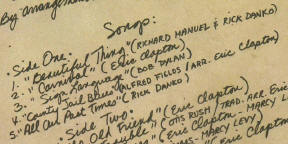 By arrangement
Songs:
• Side One:
1. "Beautiful Thing" (RICHARD MANUEL & RICK DANKO)
2. "Carnival" (Eric Clapton)
3. "Sign Language" (BOB DYLAN)
4. "County Jail Blues" (ALFRED FIELDS / arr. eric Clapton)
5. "All Our Past Times" (RICK DANKO)
• Side Two:
Old Friend" (Eric Clapton)
" (OTIS RUSH / TRAD. ARR Eric
(Eric Clapton - MARCY L
MS - MARCY LEVY)
(Eric Clapton